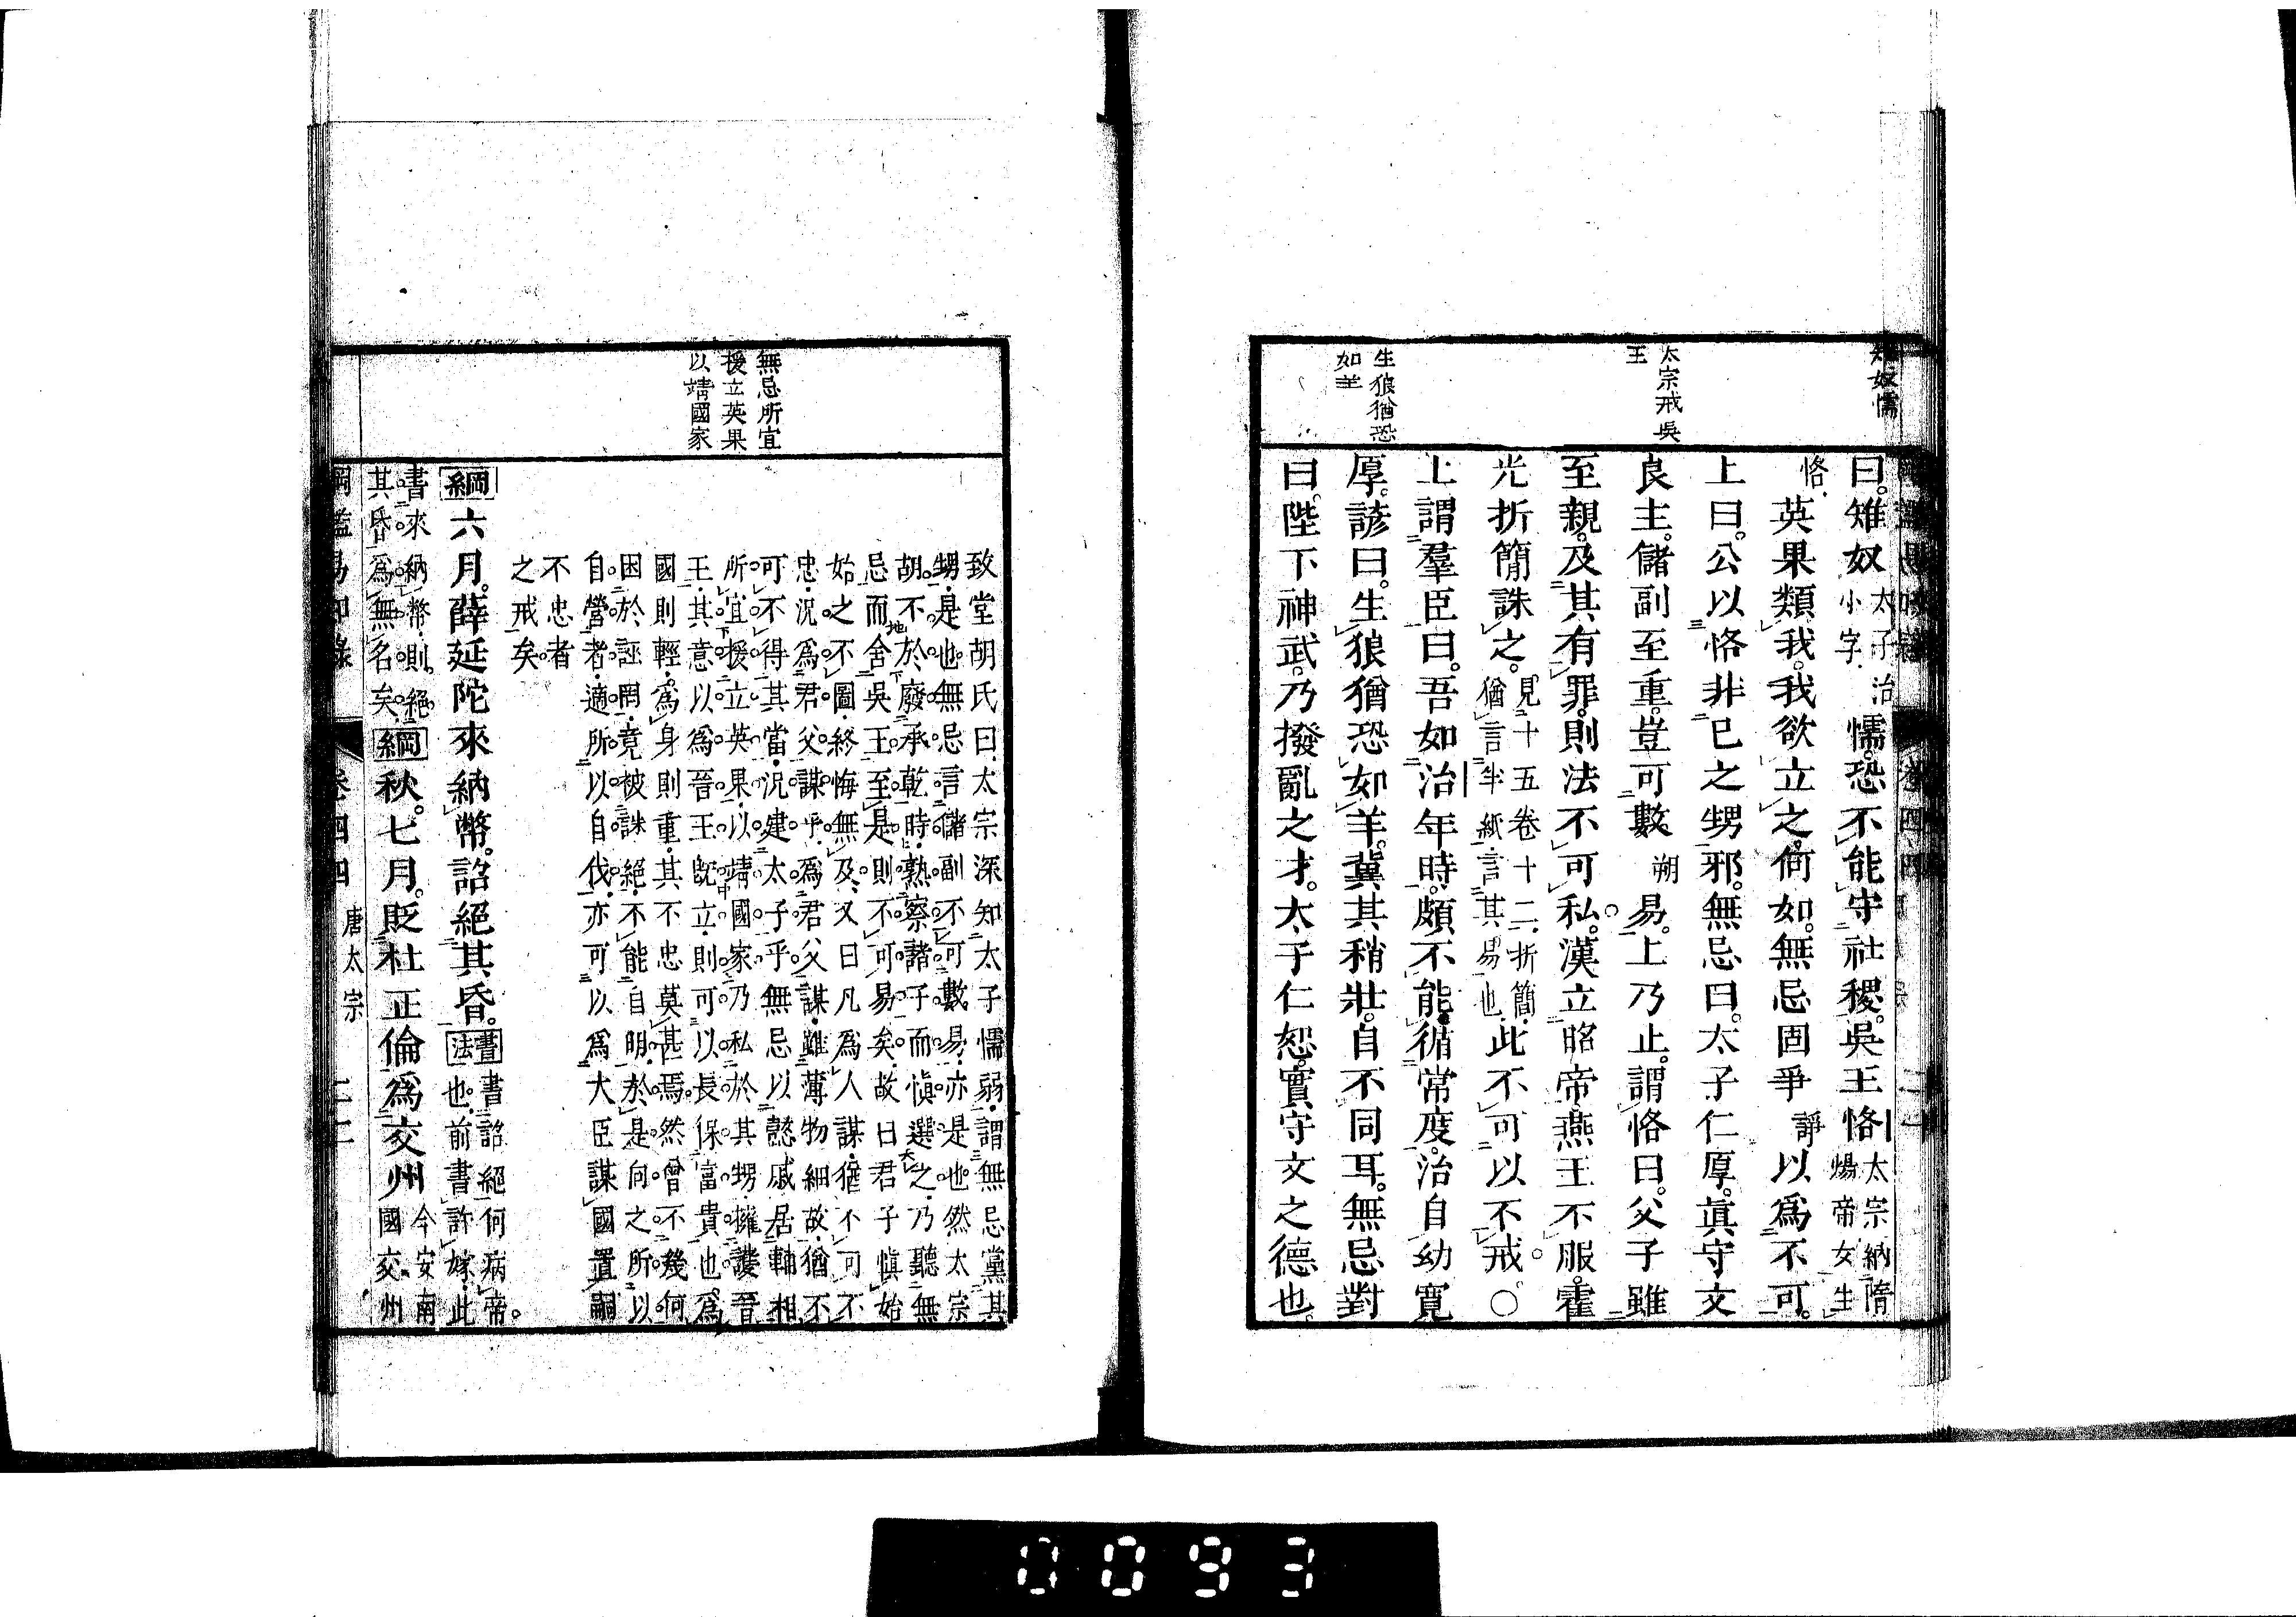 雉奴懦
太宗戒吳
王
生狼猶恐
如羊
曰。雉奴太子治小字懦。恐不能守社稷。吳王恪太宗納隋煬帝女生
恪英果類我。我欲立之。何如。無忌固爭諍以爲不可。
上曰。公以恪非已之甥邪。無忌曰。太子仁厚。眞守文
良主。儲副至重。豈可數朔易。上乃止。謂恪曰。父子雖
至親。及其有罪。則法不可私。漢立昭帝。燕王不服。霍
光折簡誅之。見十五卷十二折簡猶言半紙言其易也此不可以不戒。○
上謂羣臣曰。吾如治年時。頗不能循常度。治自幼寬
厚。諺曰。生狼猶恐如羊。冀其稍壯。自不同耳。無忌對
曰。陛下神武。乃撥亂之才。太子仁恕。實守文之德也。
無忌所宜
援立英果
以靖國家
致堂胡氏曰太宗深知太子懦弱謂無忌黨其
甥是也無忌言儲副不可數易亦是也然太宗
胡不於廢承乾時熟察諸子而愼選之乃聽無
忌而舍吳王至是則不可易矣故曰君子愼始
始之不圖終悔無及又曰凡爲人謀猶不可不
忠況爲君父謀乎爲君父謀雖薄物細故猶不
可不得其當況建太子乎無忌以懿戚居輔相
所宜援立英果以靖國家乃私於其甥擁護晉
王其意以爲晉王旣立則可以長保富貴也爲
國則輕爲身則重其不忠莫甚焉然曾不幾何
困於誣罔竟被誅絕不能自明於是向之所以
自營者適所以自伐亦可以爲大臣謀國置嗣
不忠者
之戒矣
綱六月。薛延陀來納幣。詔絕其昏。書法書詔絕何病帝也前書許嫁此
書來納幣則絕其昏爲無名矣綱秋。七月。貶杜正倫爲交州今安南國交州
綱鑑易知錄 卷四四 唐太宗